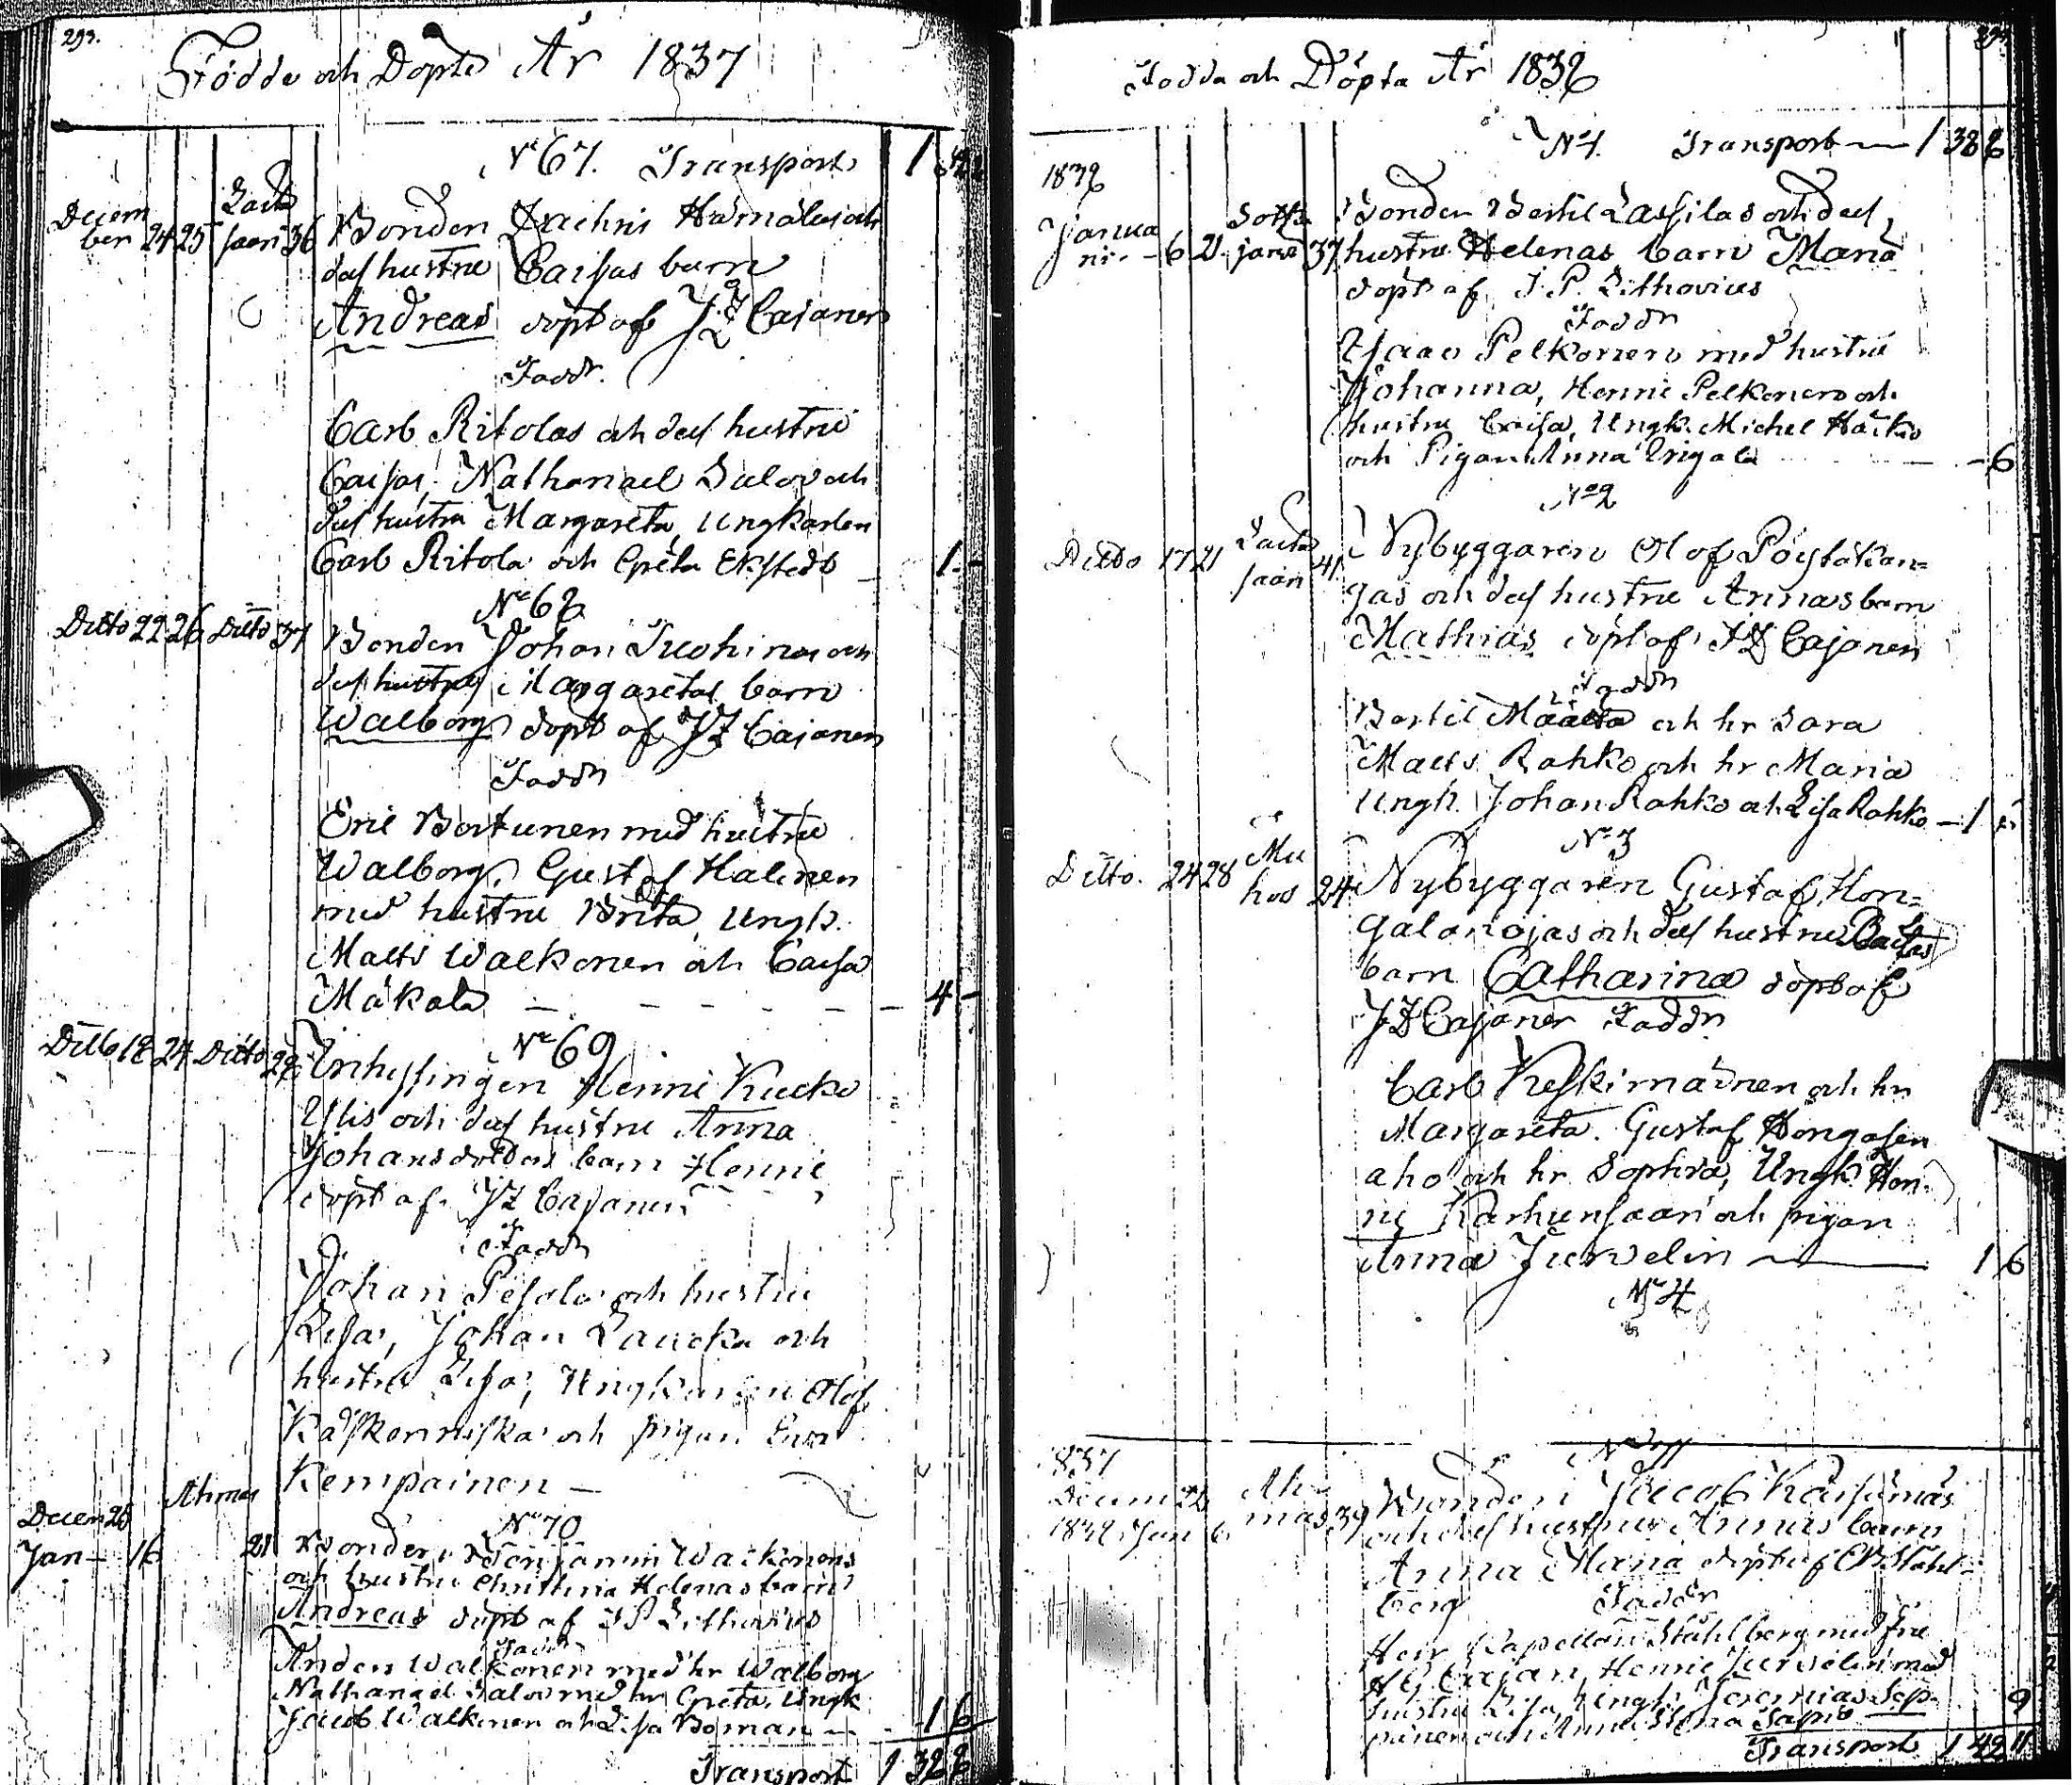 293.
Födde och Döpte År 1837
N° 67. Transport 1
Decem
ber 24 25
saari 36
Bonden Zachris Hämäläs och
dess hustru Caisas barn
Andreas döpt af J Z Cajanen
Faddr.
Carl Ritolas och dess hustru
Caisa, Nathanael Salov och
dess hustru Margareta, Ungkarlen
Carl Ritola och Greta Ekstedt 1 -
N° 68
Ditto 22 26 Ditto 37
Bonden Johan Tuohinos och
dess hustru Margaretas barn
Walborg döpt af J Z Cajanen
Faddr
Eric Bovtunen med hustru
Walborg, Gustaf Halonen
med hustru Brita, Ungk.
Matts Walkonen och Caisa
Mäkälä - - - - - 4 -
N° 69
Ditto 18 24 Ditto 28
Inhysingen Henric Kucko
och dess hustru Anna
Johansdotters barn Henric
döpt af J Z Cajanen
Faddr
Johan Pesola och hustru
Lisa, Johan Laucka och
hustru Lisa, Ungkarlen Olof
och pigan
Kempainen -
N° 70
Decem 25
Jan - 16
Ahmas
21
Bonden Benjamin Walkonens
och hustru Christina Helenas barn
Andreas döpt af J P Lithovius
Faddr
Anders Walkonen med hr Walborg
Nathanael Salov med hr Greta, Ungk
Jacob Walkonen och Lisa Boman - - 1 6
Transport 1 38 8
294
Födda och Döpta År 1838
N° 1. Transport — 1 38 8
1838
Janua
ri - 6 21
Sotka
jarvi 37
Bonden Bertil Lassilas och dess
hustru Helenas barn Maria
döpt af J. P. Lithovius
Faddr
Isaac Pelkonen med hustru
Johanna, Henric Pelkonen och
hustru Caisa, Ungk. Michel Häikiö
och Pigan Anna - 6
N° 2
Ditto 17 21
saari 41
Nybyggaren Olof Pöystäkan=
gas och dess hustru Annas barn
Mathias döpt af J Z Cajanen
Faddr
Bertil Määttä och hr Sara
Matts Rahko och hr Maria
Ungk. Johan Rahko och Lisa Rahko - 1
N° 3
Ditto. 24 28
Mu
hos 24
Nybyggaren Gustaf Hon=
galanojas och dess hustru
barn Catharina döpt af
J Z Cajanen Faddr
Carl Keskimäinen och hr
Margareta. Gustaf Hongasen
aho och hr Sophia, Ungk Hen
ric Karhunsaari och pigan
Anna Jurvelin — 1 6
N° 4
N° 71
1837
Decem 26
1838 Jan 6
Ah
mas 39
Bonden Jacob Karsämäs
och dess hustru Annas barn
Anna Maria döpt af Ståhl=
berg Faddr
Herr Kapellan Ståhlberg med fru
Cajan, Henric Jurvelin med
hustru Lisa, Ungk. Jeremias Sep
pänen och Anna Sapio 9
Transport 1 42 11